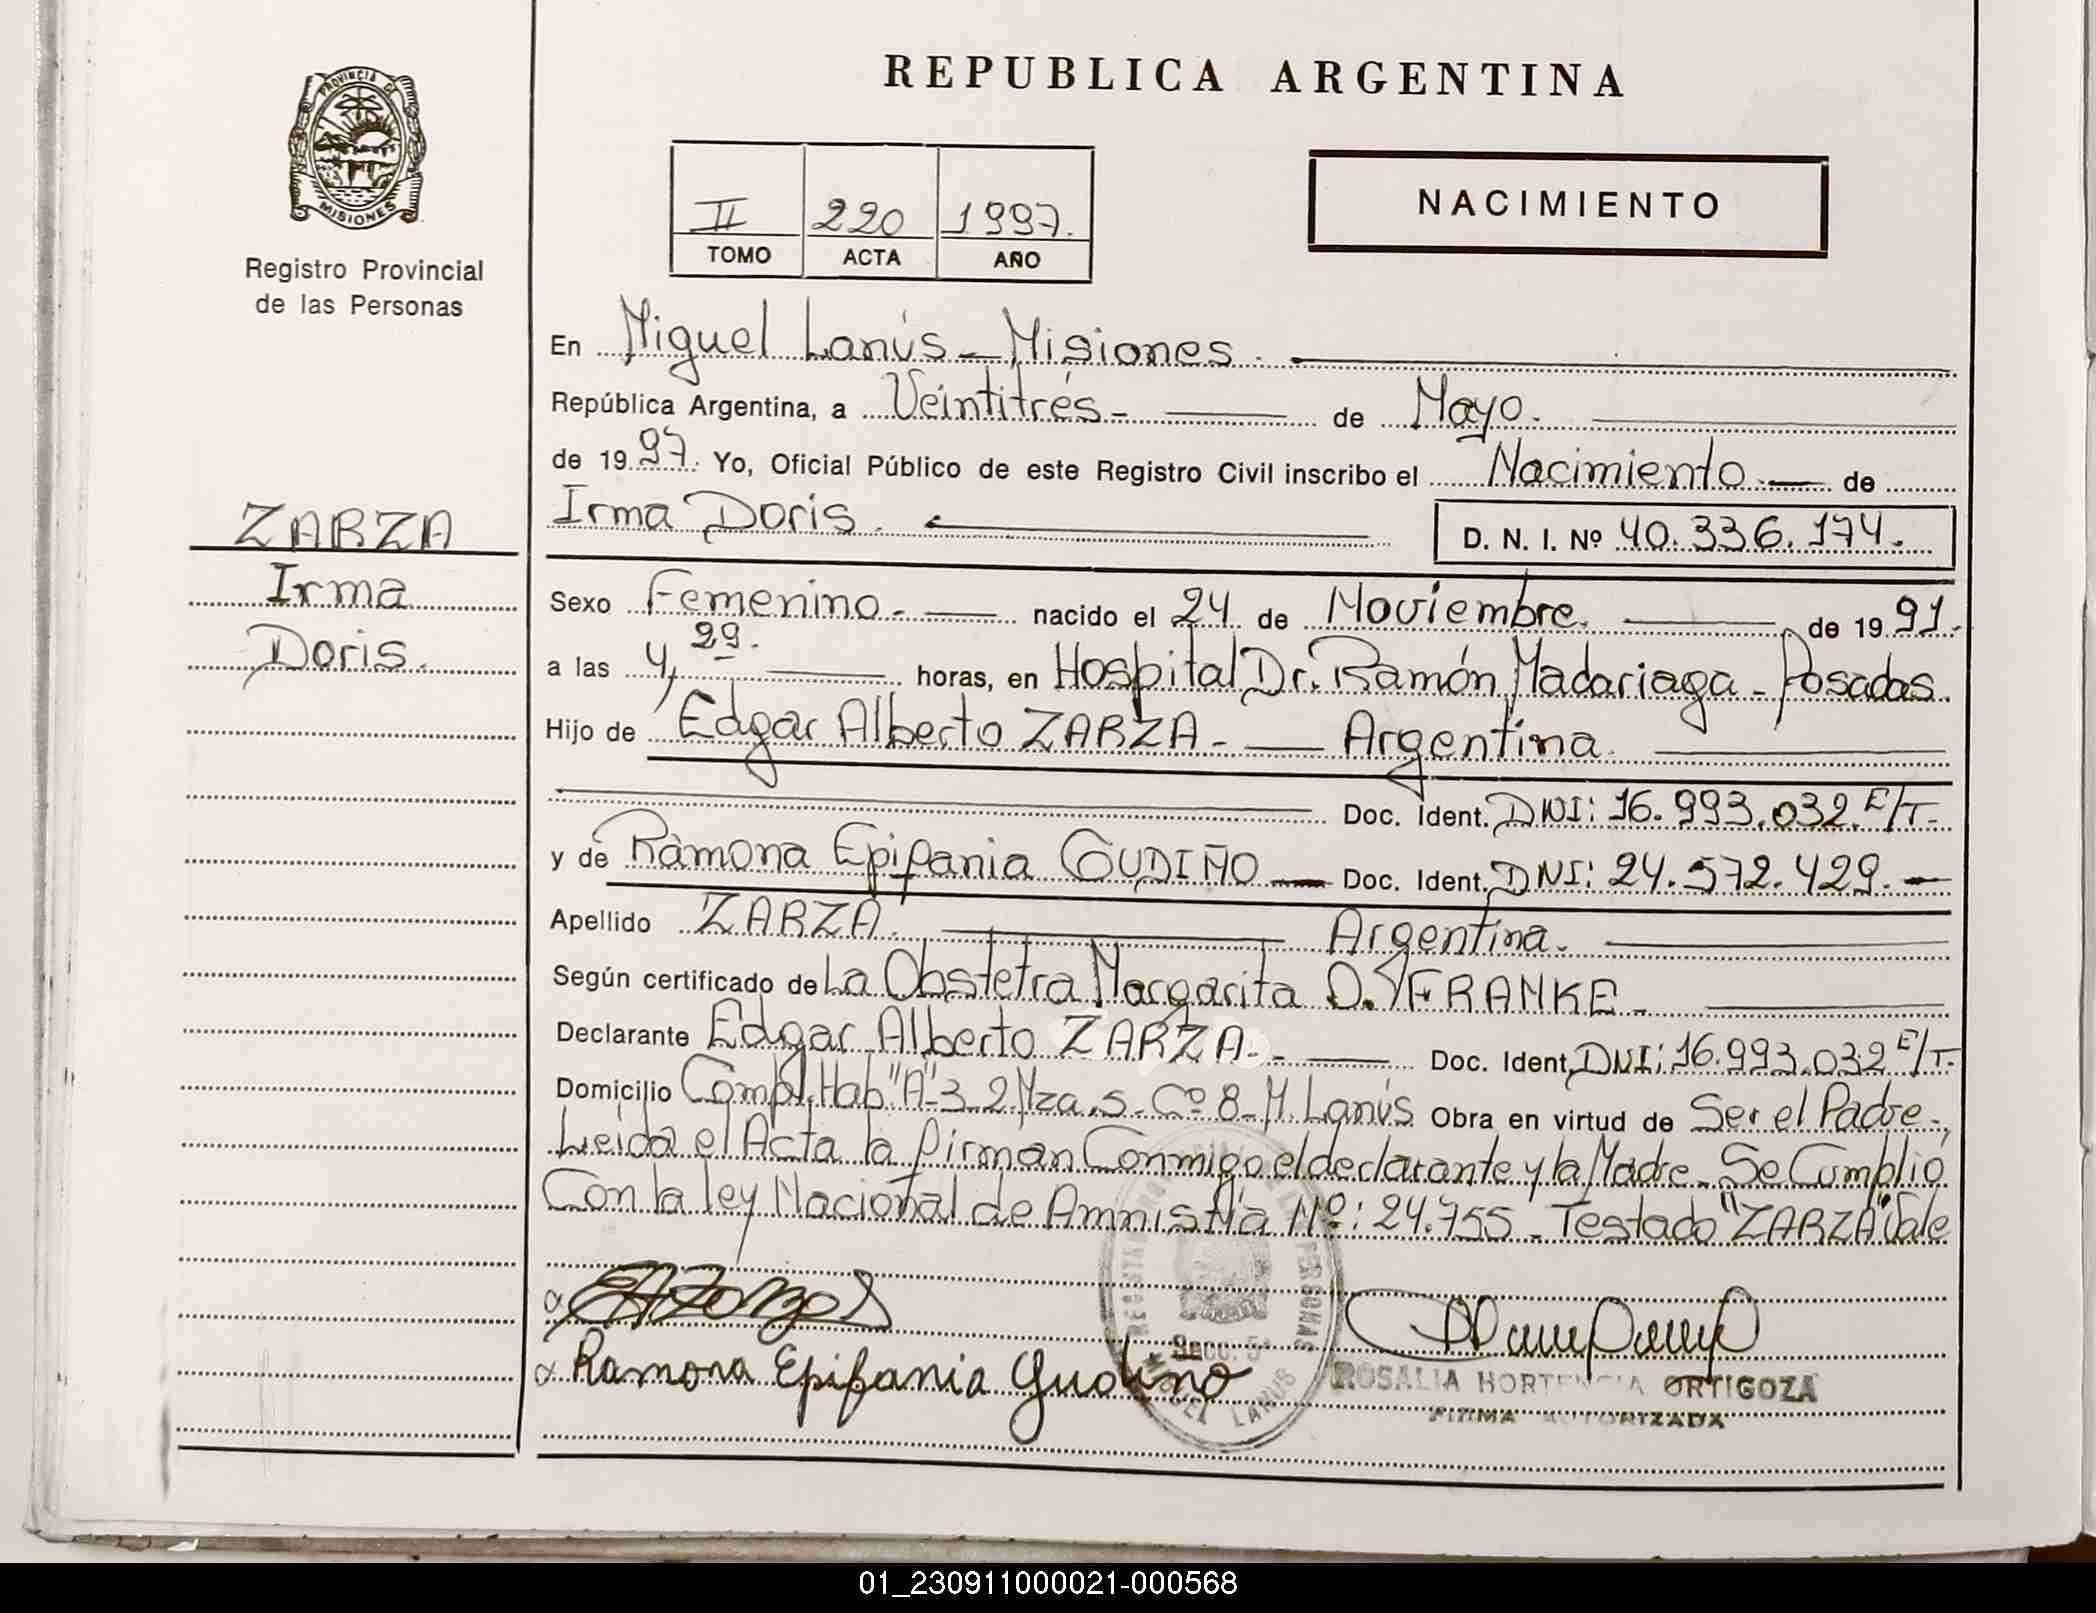 REPUBLICA ARGENTINA
PROVINCIA DE MISIONES
Registro Provincial
de las Personas
II 220 1997.
TOMO ACTA AÑO
NACIMIENTO
En Miguel Lanús - Misiones.
República Argentina, a Veintitrés - de Mayo.
de 1997. Yo, Oficial Público de este Registro Civil inscribo el Nacimiento - de
Irma Doris. D. N. I. Nº 40.336.174.
ZARZA
Irma
Doris.
Sexo Femenino - nacido el 24 de Noviembre. de 1991.
a las 4,29. horas, en Hospital Dr. Ramón Madariaga - Posadas.
Hijo de Edgar Alberto ZARZA - Argentina.
Doc. Ident. DNI: 16.993.032 E/T.
y de Ramona Epifania GUDIÑO - Doc. Ident. DNI: 24.572.429. -
Apellido ZARZA. Argentina.
Según certificado de La Obstetra Margarita D. FRANKE -
Declarante Edgar Alberto ZARZA - Doc. Ident. DNI: 16.993.032 E/T.
Domicilio Compl. Hab "A" - 32 Mza. 5 - Cº 8 - M. Lanús Obra en virtud de Ser el Padre -,
Leida el Acta la firman Conmigo el declarante y la Madre - Se Cumplió
Con la ley Nacional de Amnistía Nº: 24.755 - Testado "ZARZA" Vale
Ramona Epifania Gudiño
REGISTRO PERSONAS
Secc. 5ª
MIGUEL LANUS
ROSALIA HORTENCIA ORTIGOZA
FIRMA AUTORIZADA
01_230911000021-000568